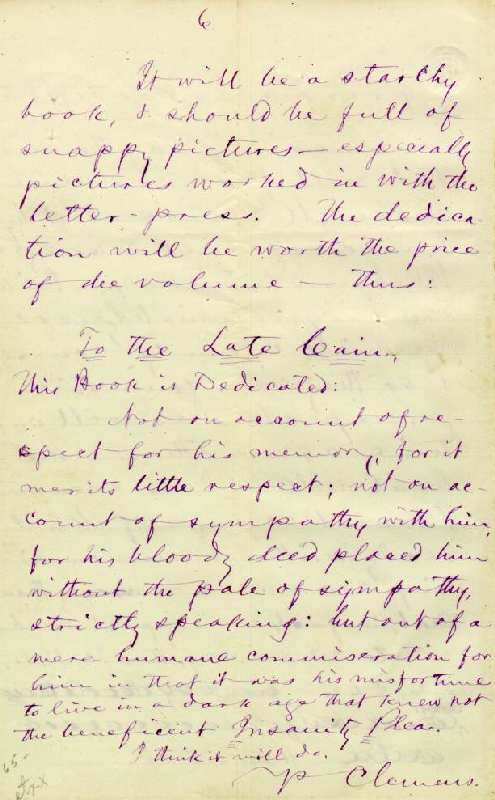 6
It will be a starchy
book, & should be full of
snappy pictures — especially
pictures worked in with the
letter-press. The dedica-
tion will be worth the price
of the volume — thus:
To the Late Cain,
This Book is Dedicated:
Not on account of re-
spect for his memory, for it
merits little respect; not on ac-
count of sympathy with him,
for his bloody deed placed him
without the pale of sympathy,
strictly speaking: but out of a
mere humane commiseration for
him in that it was his misfortune
to live in a dark age that knew not
the beneficent Insanity Plea.
I think it will do.
Yr Clemens.
65